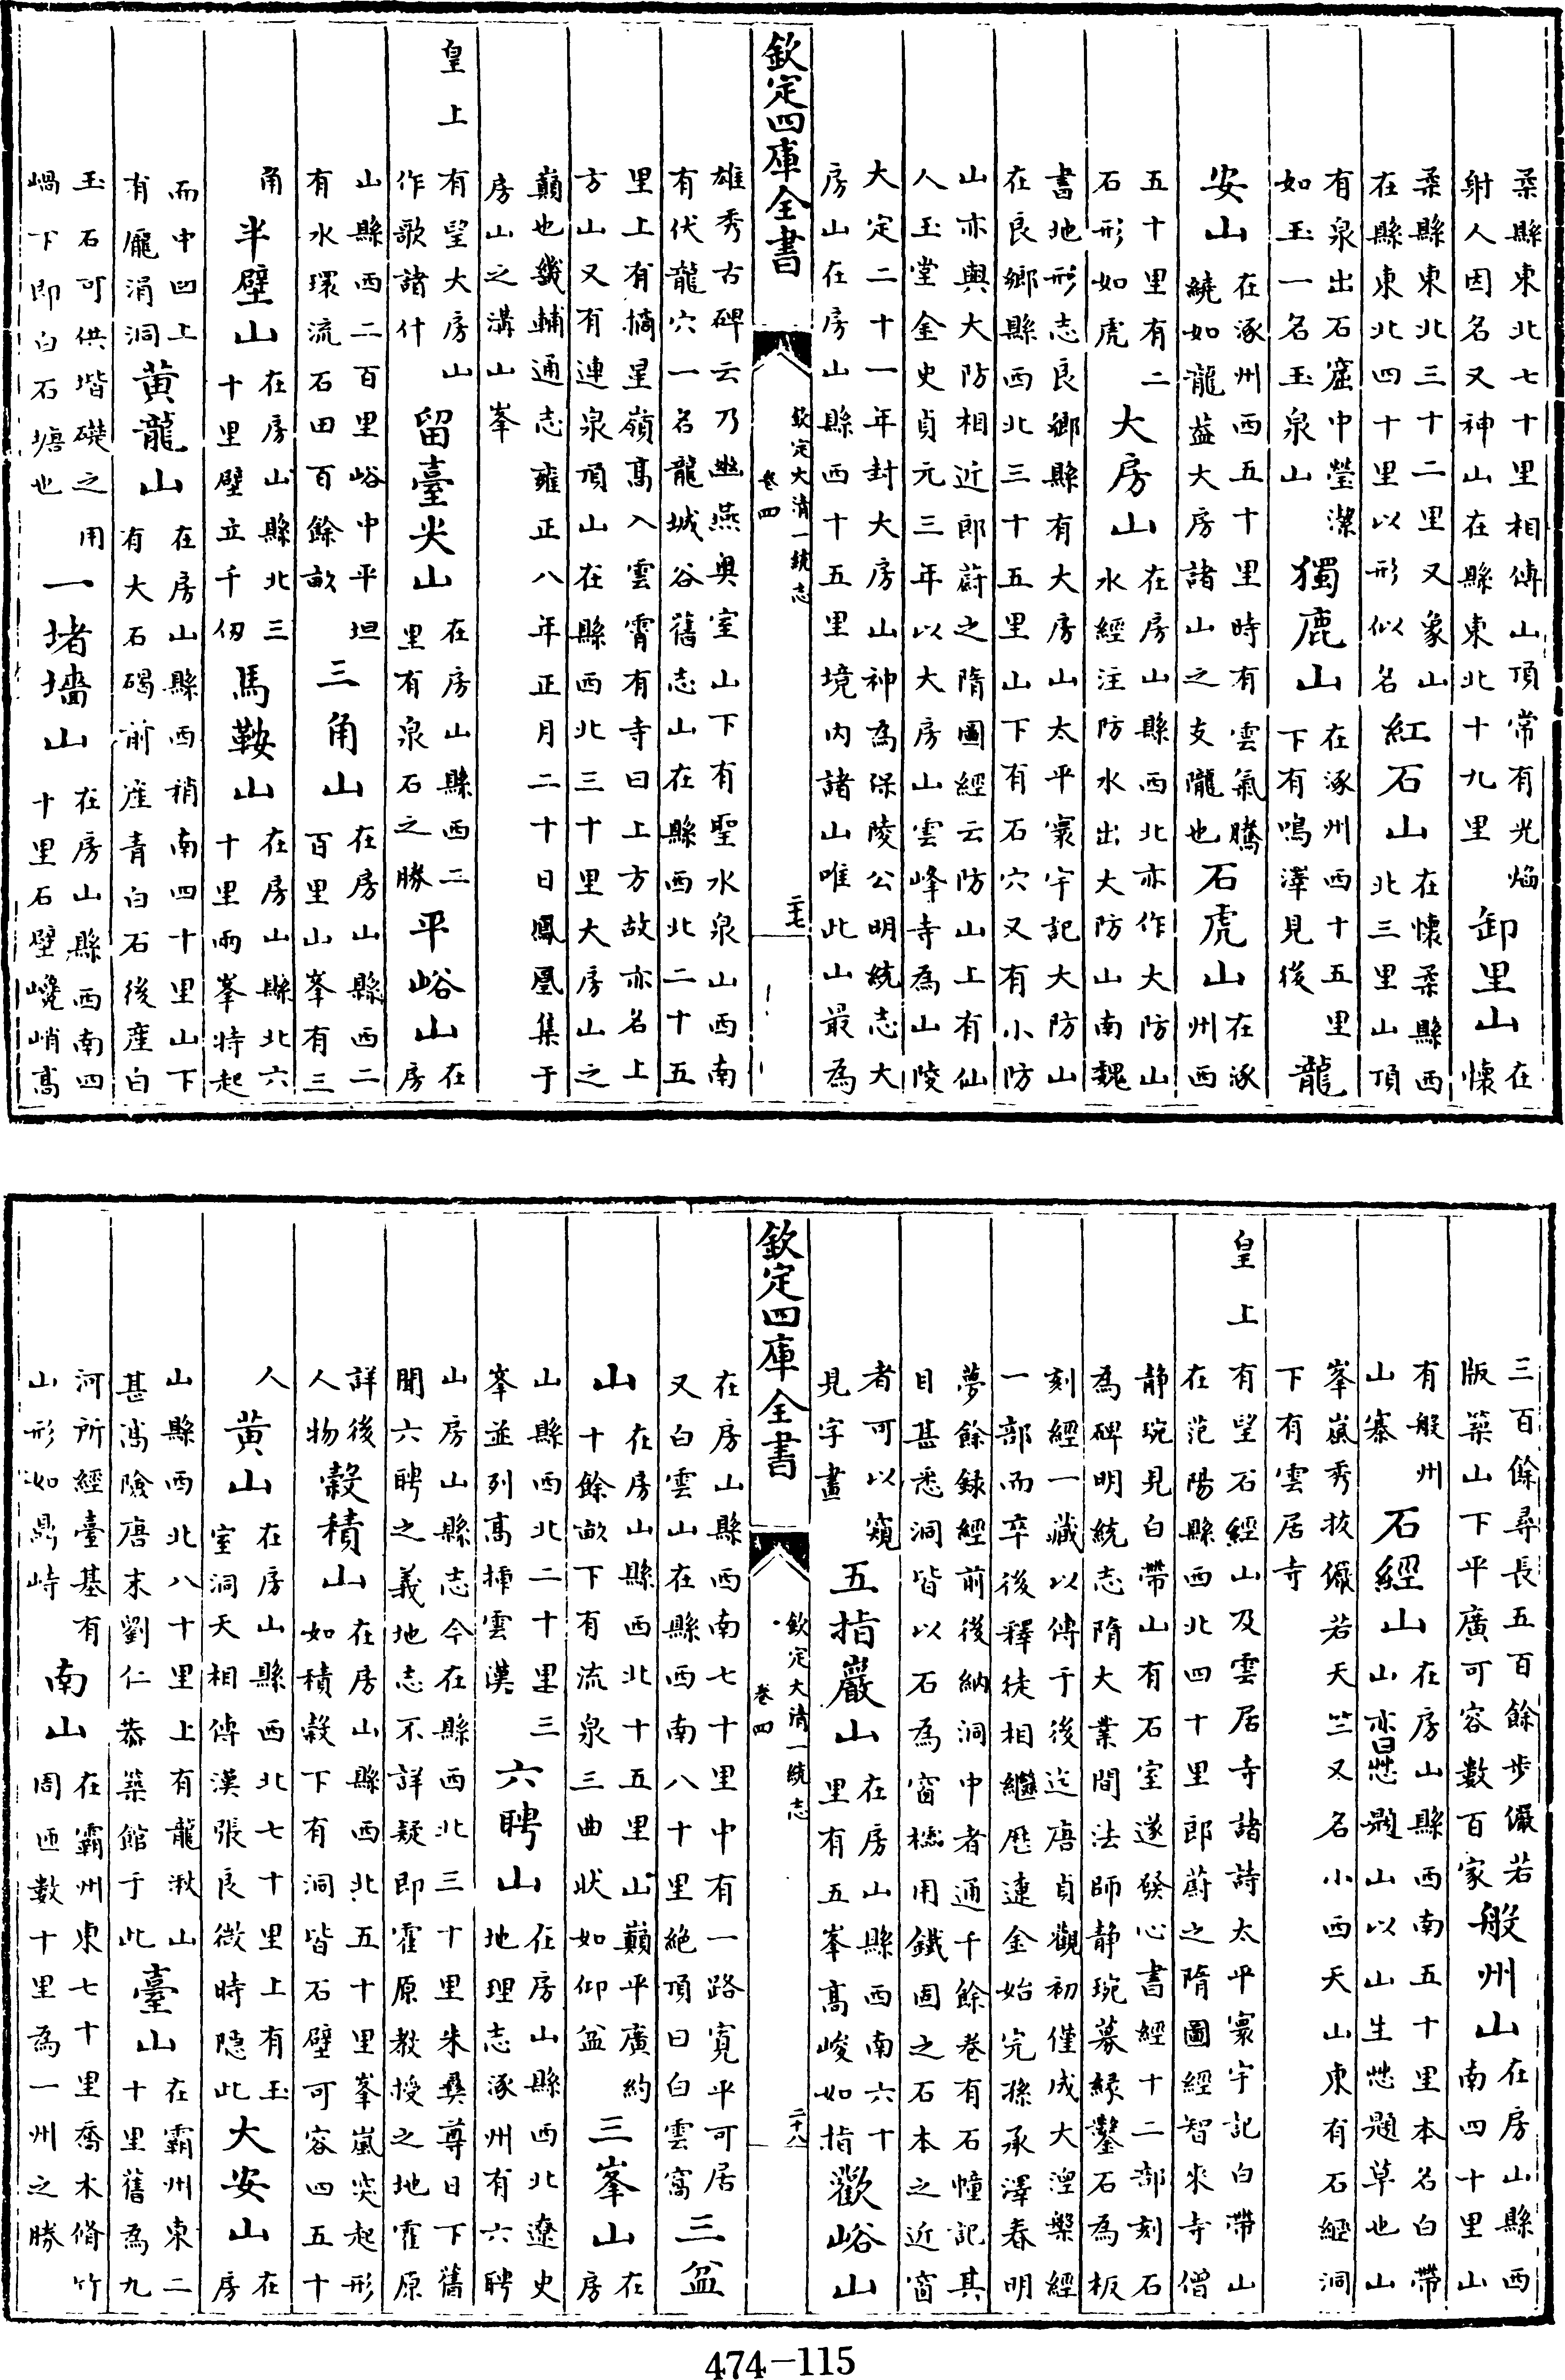 柔縣東北七十里相傳山頂常有光焰 卸里山 在
射人因名又神山在縣東北十九里 懷
柔縣東北三十二里又象山 紅石山 在懷柔縣西
在縣東北四十里以形似名 北三里山頂
有泉出石窟中瑩潔 獨鹿山 在涿州西十五里 龍
如玉一名玉泉山 下有鳴澤見後
安山 在涿州西五十里時有雲氣騰 石虎山 在涿
繞如龍益大房諸山之支隴也 州西
五十里有二 大房山 在房山縣西北亦作大防山
石形如虎 水經注防水出大防山南魏
書地形志良鄉縣有大房山太平寰宇記大防山
在良鄉縣西北三十五里山下有石穴又有小防
山亦與大防相近郎蔚之隋圖經云防山上有仙
人玉堂金史貞元三年以大房山雲峰寺為山陵
大定二十一年封大房山神為保陵公明統志大
房山在房山縣西十五里境内諸山唯此山最為
欽定四庫全書
欽定大清一統志
卷四
二十七
雄秀古碑云乃幽燕奥室山下有聖水泉山西南
有伏龍穴一名龍城谷舊志山在縣西北二十五
里上有摘星嶺髙入雲霄有寺曰上方故亦名上
方山又有連泉頂山在縣西北三十里大房山之
巔也畿輔通志雍正八年正月二十日鳳凰集于
房山之溝山峯
皇上有望大房山 留臺尖山 在房山縣西二 平峪山 在
作歌諸什 里有泉石之勝 房
山縣西二百里峪中平坦 三角山 在房山縣西二
有水環流石田百餘畝 百里山峯有三
角 半壁山 在房山縣北三 馬鞍山 在房山縣北六
十里壁立千仞 十里兩峯特起
而中凹上 黄龍山 在房山縣西稍南四十里山下
有龎涓洞 有大石碣前産青白石後産白
玉石可供堦礎之用 一堵墻山 在房山縣西南四
嵎下即白石塘也 十里石壁巉峭髙
三百餘尋長五百餘步儼若 般州山 在房山縣西
版築山下平廣可容數百家 南四十里山
有般州 石經山 在房山縣西南五十里本名白帶
山寨 山亦曰㤠題山以山生㤠題草也山
峯嵐秀拔儼若天竺又名小西天山東有石經洞
下有雲居寺
皇上有望石經山及雲居寺諸詩太平寰宇記白帶山
在范陽縣西北四十里郎蔚之隋圖經智泉寺僧
静琬見白帶山有石室遂發心書經十二部刻石
為碑明統志隋大業間法師静琬募縁鑿石為板
刻經一藏以傳于後迄唐貞觀初僅成大湼槃經
一部而卒後釋徒相繼歴遼金始完孫承澤春明
夢餘録經前後納洞中者通千餘巻有石幢記其
目甚悉洞皆以石為窗櫺用鐵固之石本之近窗
者可以窺 五指巖山 在房山縣西南六十 歡峪山
見字畫 里有五峯髙峻如指
欽定四庫全書
欽定大清一統志
卷四
二十八
在房山縣西南七十里中有一路寛平可居 三盆
又白雲山在縣西南八十里絶頂曰白雲窩
山 在房山縣西北十五里山巔平廣約 三峯山 在
十餘畝下有流泉三曲狀如仰盆 房
山縣西北二十里三 六聘山 在房山縣西北遼史
峯並列髙揷雲漢 地理志涿州有六聘
山房山縣志今在縣西北三十里朱彛尊日下舊
聞六聘之義地志不詳疑即霍原教授之地霍原
詳後 穀積山 在房山縣西北五十里峯嵐突起形
人物 如積穀下有洞皆石壁可容四五十
人 黄山 在房山縣西北七十里上有玉 大安山 在
室洞天相傳漢張良微時隠此 房
山縣西北八十里上有龍湫山 臺山 在霸州東二
甚髙險唐末劉仁恭築館于此 十里舊為九
河所經臺基有 南山 在霸州東七十里喬木脩竹
山形如鼎峙 周匝數十里為一州之勝
474—115